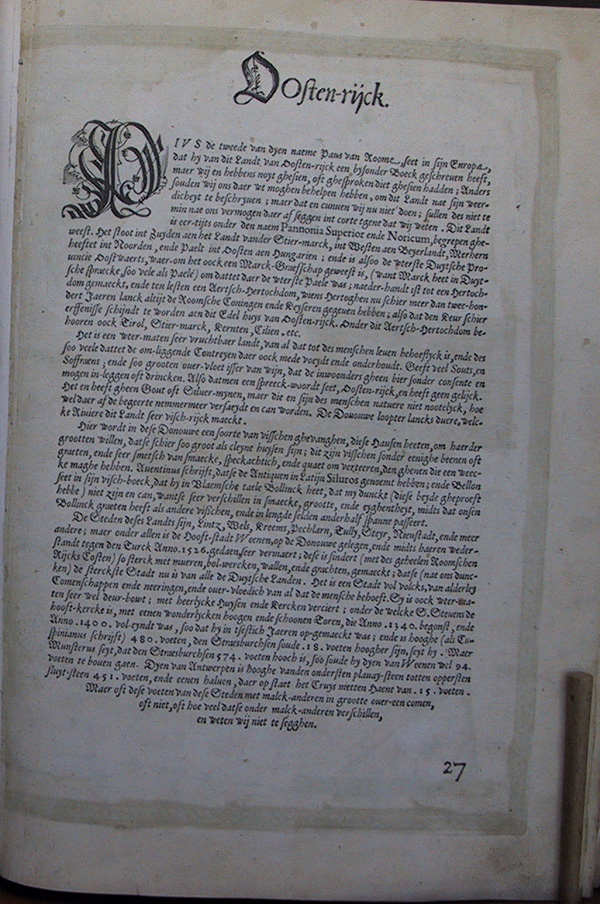 Oosten-rijck.
PIVS de tweede van dyen naeme Paus van Roome, seet in sijn Europa,
dat hy van dit Landt van Oosten-rijck een bysonder Boeck geschreuen heeft,
maer wij en hebbens noyt ghesien, oft ghesproken diet ghesien hadden; Anders
souden wij ons daer wt moghen behelpen hebben, om dit Landt nae sijn weer-
dicheyt te beschryuen; maer dat en cunnen wij nu niet doen; sullen des niet te
min nae ons vermogen daer af seggen int corte tgene dat wij weten. Dit Landt
is eer-tijts onder den naem Pannonia Superior ende Noricum, begrepen ghe-
weest. Het stoot int Zuyden aen het Landt vander Stier-marck, int Westen aen Beyerlandt, Merhern
heeftet int Noorden, ende Paelt int Oosten aen Hungarien; ende is alsoo de wterste Duytsche Pro-
uincie Oostwaerts, waer-om het oock een Marck-Graefschap geweest is, (want Marck heet in Duyt-
sche spraecke, soo vele als Paele) om dattet daer de wterste Paele was; naeder-handt ist tot een Hertoch-
dom gemaeckt, ende ten lesten een Aertsch-Hertochdom, wiens Hertoghen nu schier meer dan twee-hon-
dert Jaeren lanck altijt de Roomsche Coningen ende Keyseren gegeuen hebben; alsó dat den Keur schier
erffenisse schijndt te worden aen dit Edel huys van Oosten-rijck. Onder dit Aertsch-Hertochdom be-
hooren oock Tirol, Stier-marck, Kernten, Cilien. etc.
Het is een wter-maten seer vruchtbaer landt, van al dat tot des menschen leuen behoeflyck is, ende des
soo veele dattet de om-liggende Contreyen daer oock mede voeydt ende onderhoudt. Geeft veel Souts, en
Soffraens; ende soo grooten ouer-vloet isser van wijn, dat de inwoonders gheen bier sonder consente en
mogen in-leggen oft drincken. Also datmen een spreeck-woordt seet, Oosten-rijck, en heeft geen gelijck.
Het en heeft gheen Gout oft Siluer-mynen, maer die en sijn des menschen natuere niet nootelyck, hoe
wel daer af de begeerte nemmermeer versaeydt en can worden. De Donouwe loopter lancks duere, welc-
ke Riuiere dit Landt seer visch-rijck maeckt.
Hier wordt in dese Donouwe een soorte van visschen ghevanghen, diese Hausen heeten, om haerder
grootten willen, datse schier soo groot als cleyne huysen sijn; dit zijn visschen sonder eenighe beenen oft
graeten, ende seer smetsch van smaecke, speckachtich, ende quaet om verteeren, den ghenen die een weec-
ke maghe hebben. Auentinus schrijft, datse de Antiquen in Latijn Siluros genoemt hebben; ende Bellon
seet in sijn visch-boeck, dat hy in Vlaemsche taele Bollinck heet, dat my dunckt (diese beyde gheproeft
hebbe) niet zijn en can, wantse seer verschillen in smaecke, grootte, ende eyghentheyt, midts dat onsen
Bollinck graeten heeft als andere visschen, ende in lengde selden anderhalf spanne passeert.
De Steden deses Landts sijn, Lintz, Wels, Kreems, Pechlarn, Tully, Steyr, Nieustadt, ende meer
andere; maer onder allen is de Hooft-stadt Weenen, op de Donouwe gelegen, ende midts haeren weder-
standt tegen den Turck Anno. 1526. gedaen, seer vermaert; dese is sindert (met des geheelen Roomschen
Rijcks Costen) so sterck met mueren, bol-wercken, wallen, ende grachten, gemaeckt; datse (nae ons dunc-
ken) de sterckste Stadt nu is van alle de Duytsche Landen. Het is een Stadt vol volcks, van alderley
Comenschappen ende neeringen, ende ouer-vloedich van al dat de mensche behoeft. Sy is oock wter-ma-
ten seer wel deur-bowt; met heerlycke Huysen ende Kercken verciert; onder de welcke S. Steuens de
hooft-kercke is, met eenen wonderlycken hoogen ende schoonen Toren, die Anno. 1340. begonst, ende
Anno. 1400. vol-eyndt was, soo dat hy in tsestich Jaeren op-gemaeckt was; ende is hooghe (als Cu-
spinianus schrijft) 480. voeten, den Straesburchsen soude. 18. voeten hoogher sijn, seyt hy. Maer
Munsterus seyt, dat den Straesburchsen 574. voeten hooch is, soo soude hy dyen van Weenen wel 94.
voeten te bouen gaen. Dyen van Antwerpen is hooghe vanden ondersten plauay-steen totten oppersten
sluyt-steen 451. voeten, ende eenen haluen, daer op staet het Cruys metten Haene van. 15. voeten.
Maer oft dese voeten van dese Steden met malck-anderen in grootte ouer-een comen,
oft niet, oft hoe veel datse onder malck-anderen verschillen,
en weten wij niet te segghen.
27